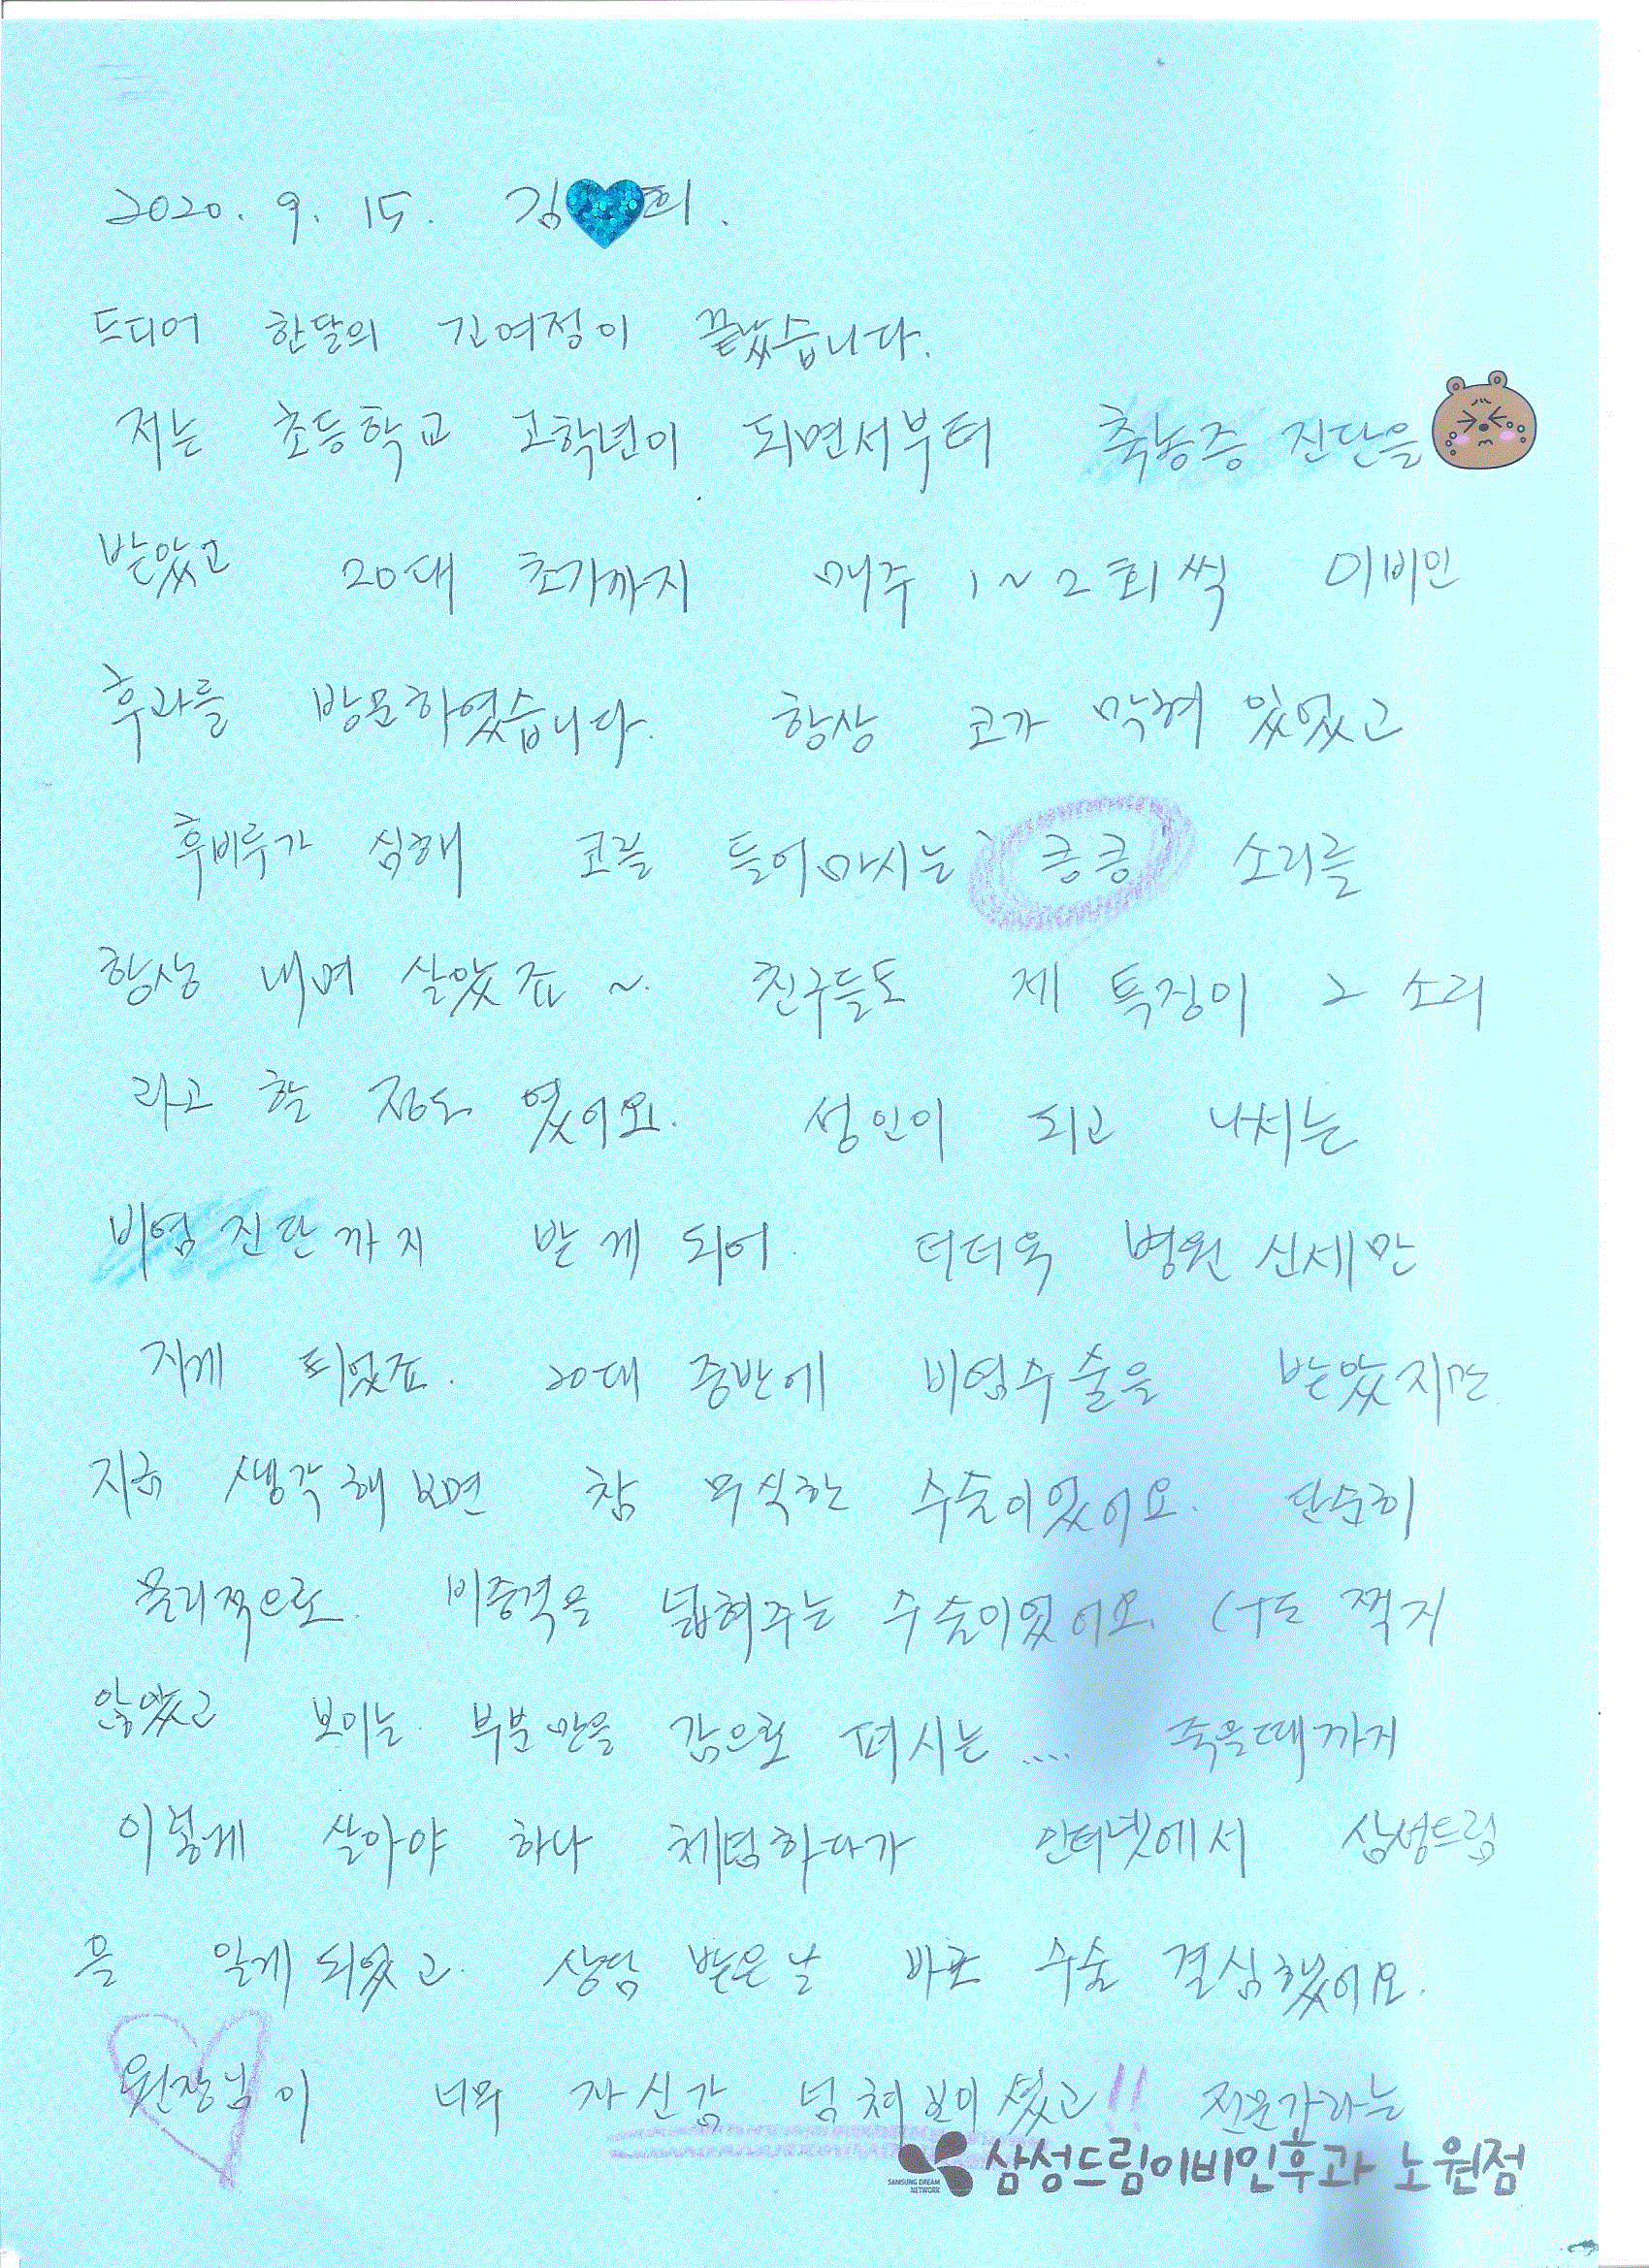 2020. 9. 15. 김 희.
드디어 한달의 긴여정이 끝났습니다.
저는 초등학교 고학년이 되면서부터 축농증 진단을
받았고 20대 초기까지 매주 1~2회씩 이비인
후과를 방문하였습니다. 항상 코가 막혀 있었고
후비루가 심해 코를 들어마시는 '킁킁' 소리를
항상 내며 살았죠~. 친구들도 제 특징이 그 소리
라고 할 정도 였어요. 성인이 되고 나서는
비염 진단까지 받게 되어 더더욱 병원 신세만
지게 되었죠. 20대 중반에 비염수술을 받았지만
지금 생각해보면 참 무식한 수술이었어요. 단순히
물리적으로 비중격을 넓혀주는 수술이었어요. CT도 찍지
않았고 보이는 부분만을 감으로 펴시는.... 죽을때까지
이렇게 살아야 하나 체념하다가 인터넷에서 삼성드림
을 알게되었고 상담 받은날 바로 수술 결심했어요.
원장님이 너무 자신감 넘쳐보이셨고!! 전문가라는
삼성드림이비인후과 노원점
SAMSUNG DREAM
NETWORK